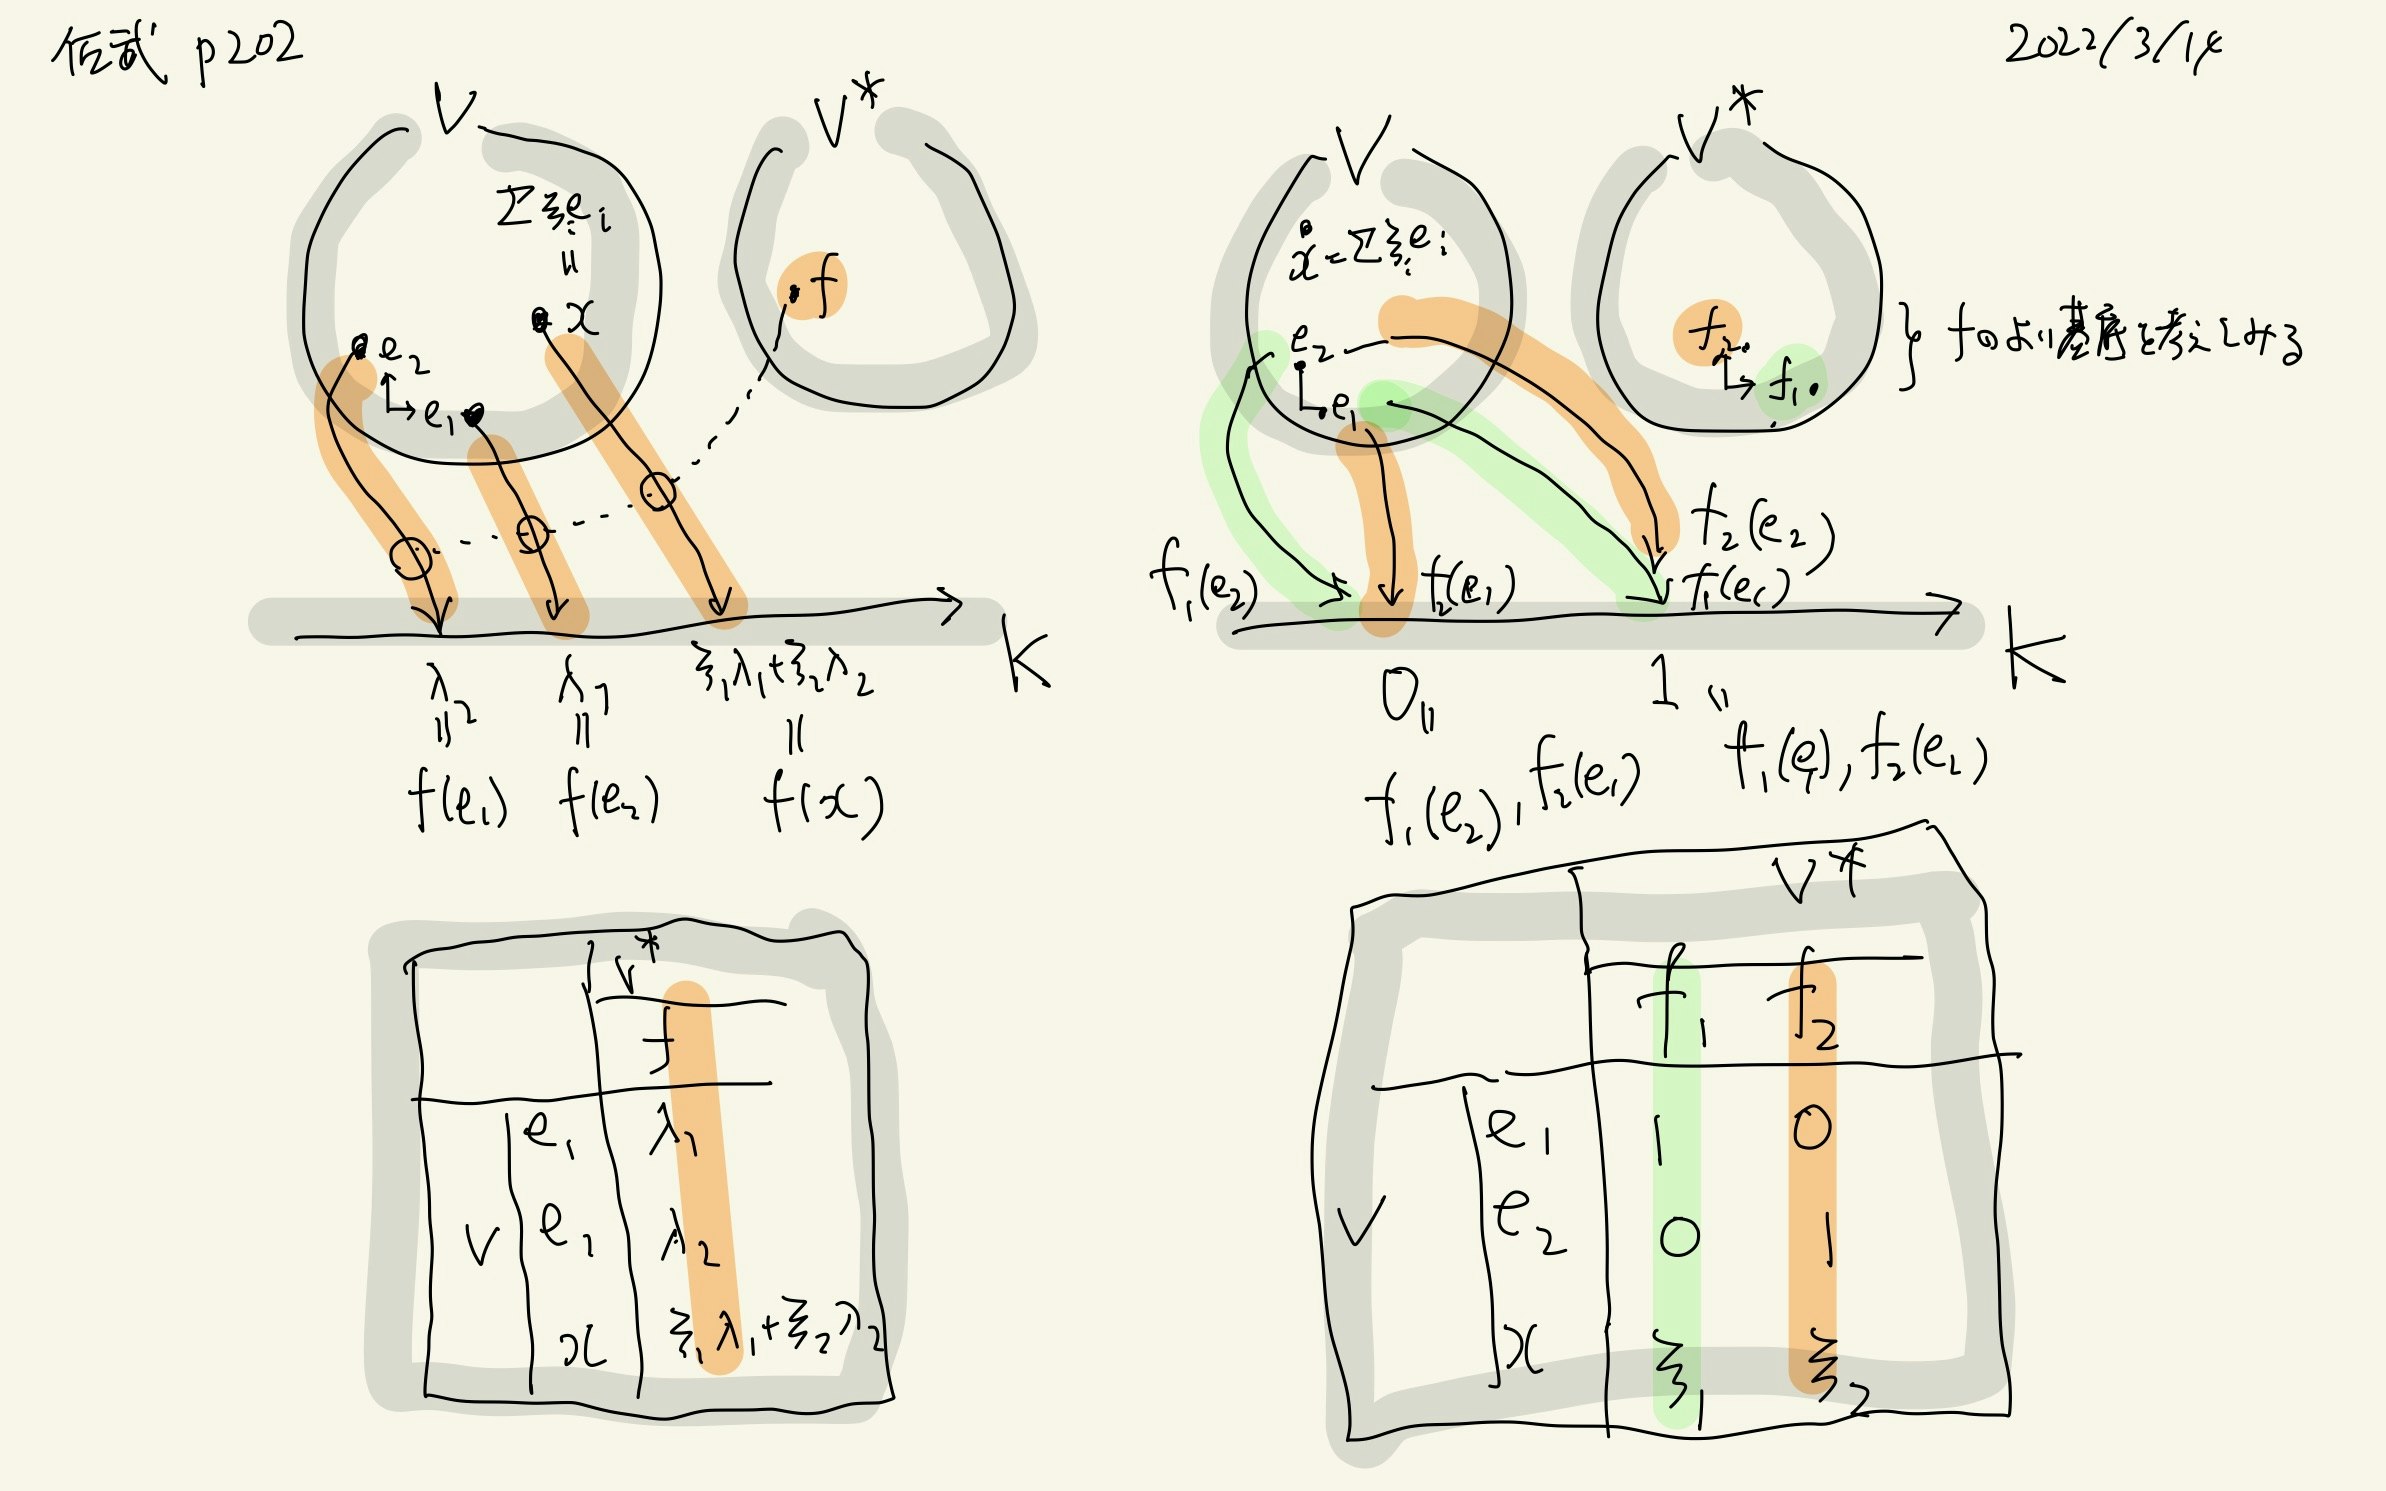 佐武 p202
2022/3/14
V
V*
Σξᵢeᵢ
||
x
f
e₂
e₁
K
λ₂
λ₁
ξ₁λ₁+ξ₂λ₂
||
||
||
f(e₁)
f(e₂)
f(x)
V
V*
x=Σξᵢeᵢ
e₂
e₁
f₂
f₁
} fのよい基底を考えてみる
f₁(e₂)
f₂(e₁)
f₂(e₂)
f₁(e₁)
K
0
1
||
||
f₁(e₂), f₂(e₁)
f₁(e₁), f₂(e₂)
V*
f
e₁ λ₁
V e₂ λ₂
x ξ₁λ₁+ξ₂λ₂
V*
f₁ f₂
e₁ 1 0
V e₂ 0 1
x ξ₁ ξ₂